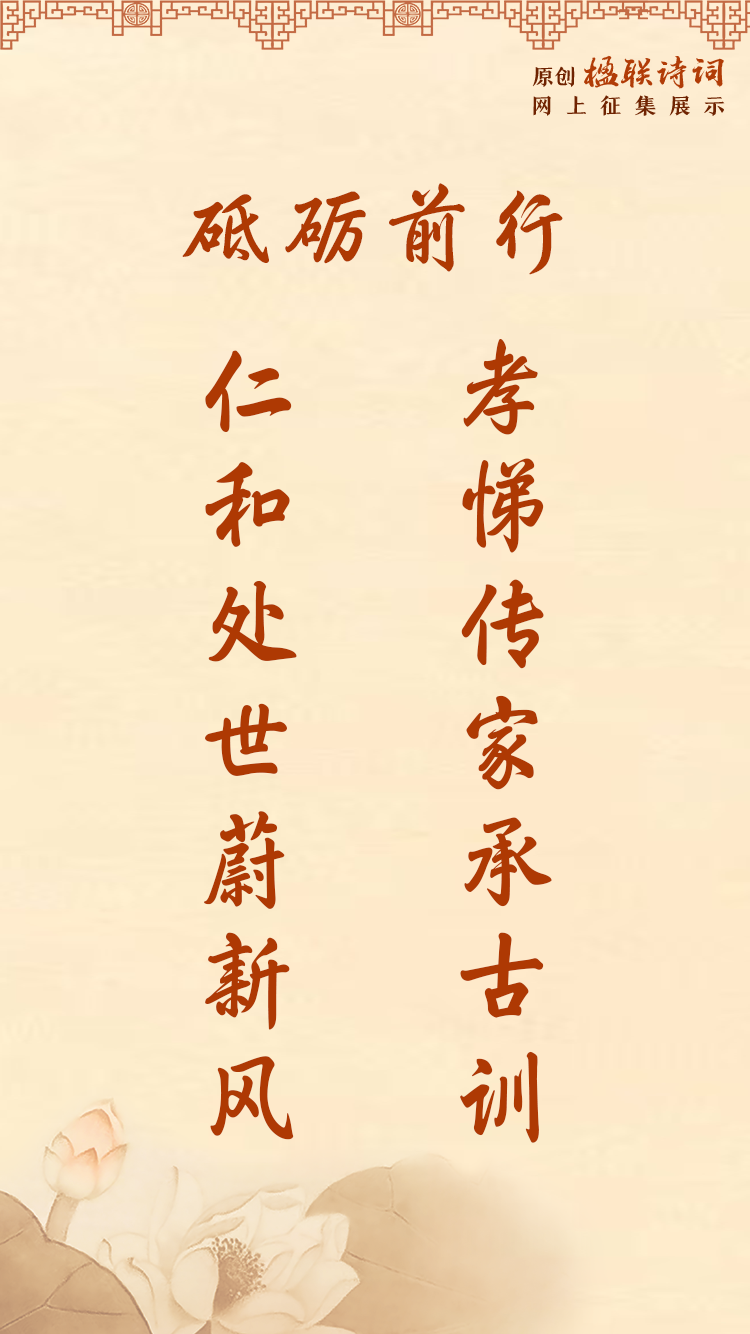 原创 楹联诗词
网上征集展示
砥砺前行
孝悌传家承古训
仁和处世蔚新风